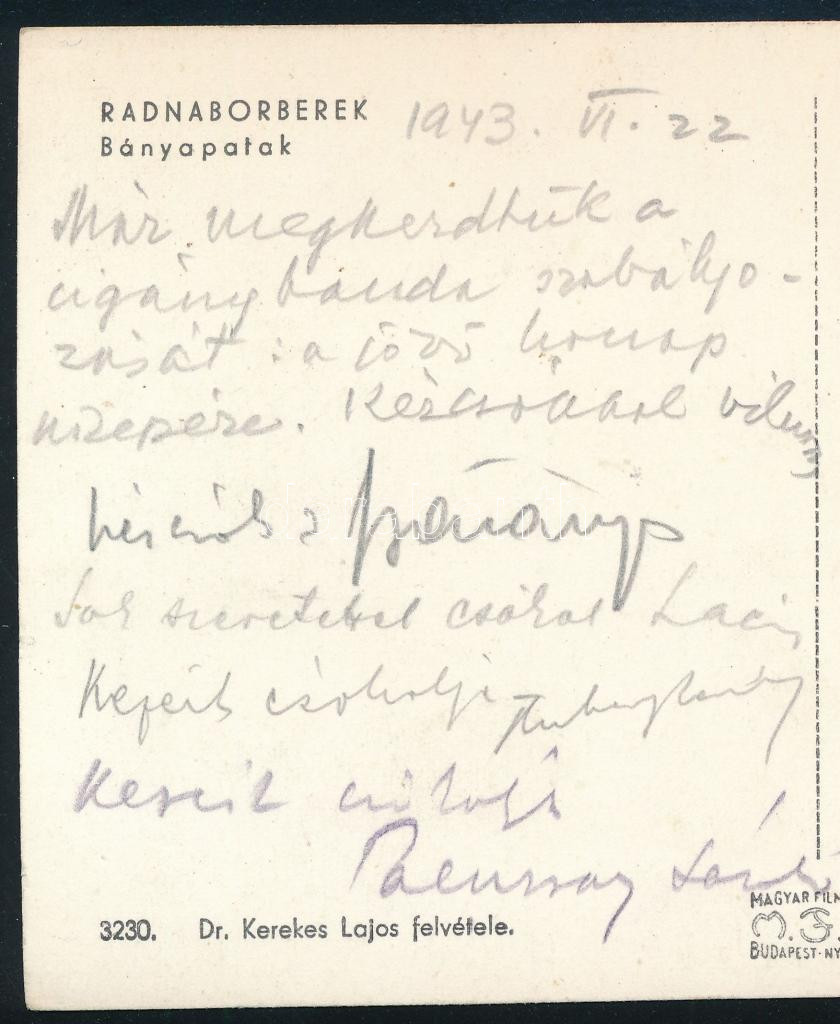 RADNABORBEREK
Bányapatak
1943. VI. 22
Már megkezdtük a
cigánybanda szabályo-
zását : a jövő hónap
közepére. Kézcsókkal
kézcsók :
Sok szeretettel csókol Laci
Kezeit csókolja
Kezeit csókolja
3230. Dr. Kerekes Lajos felvétele.
MAGYAR FILM
M. F.
BUDAPEST-NY